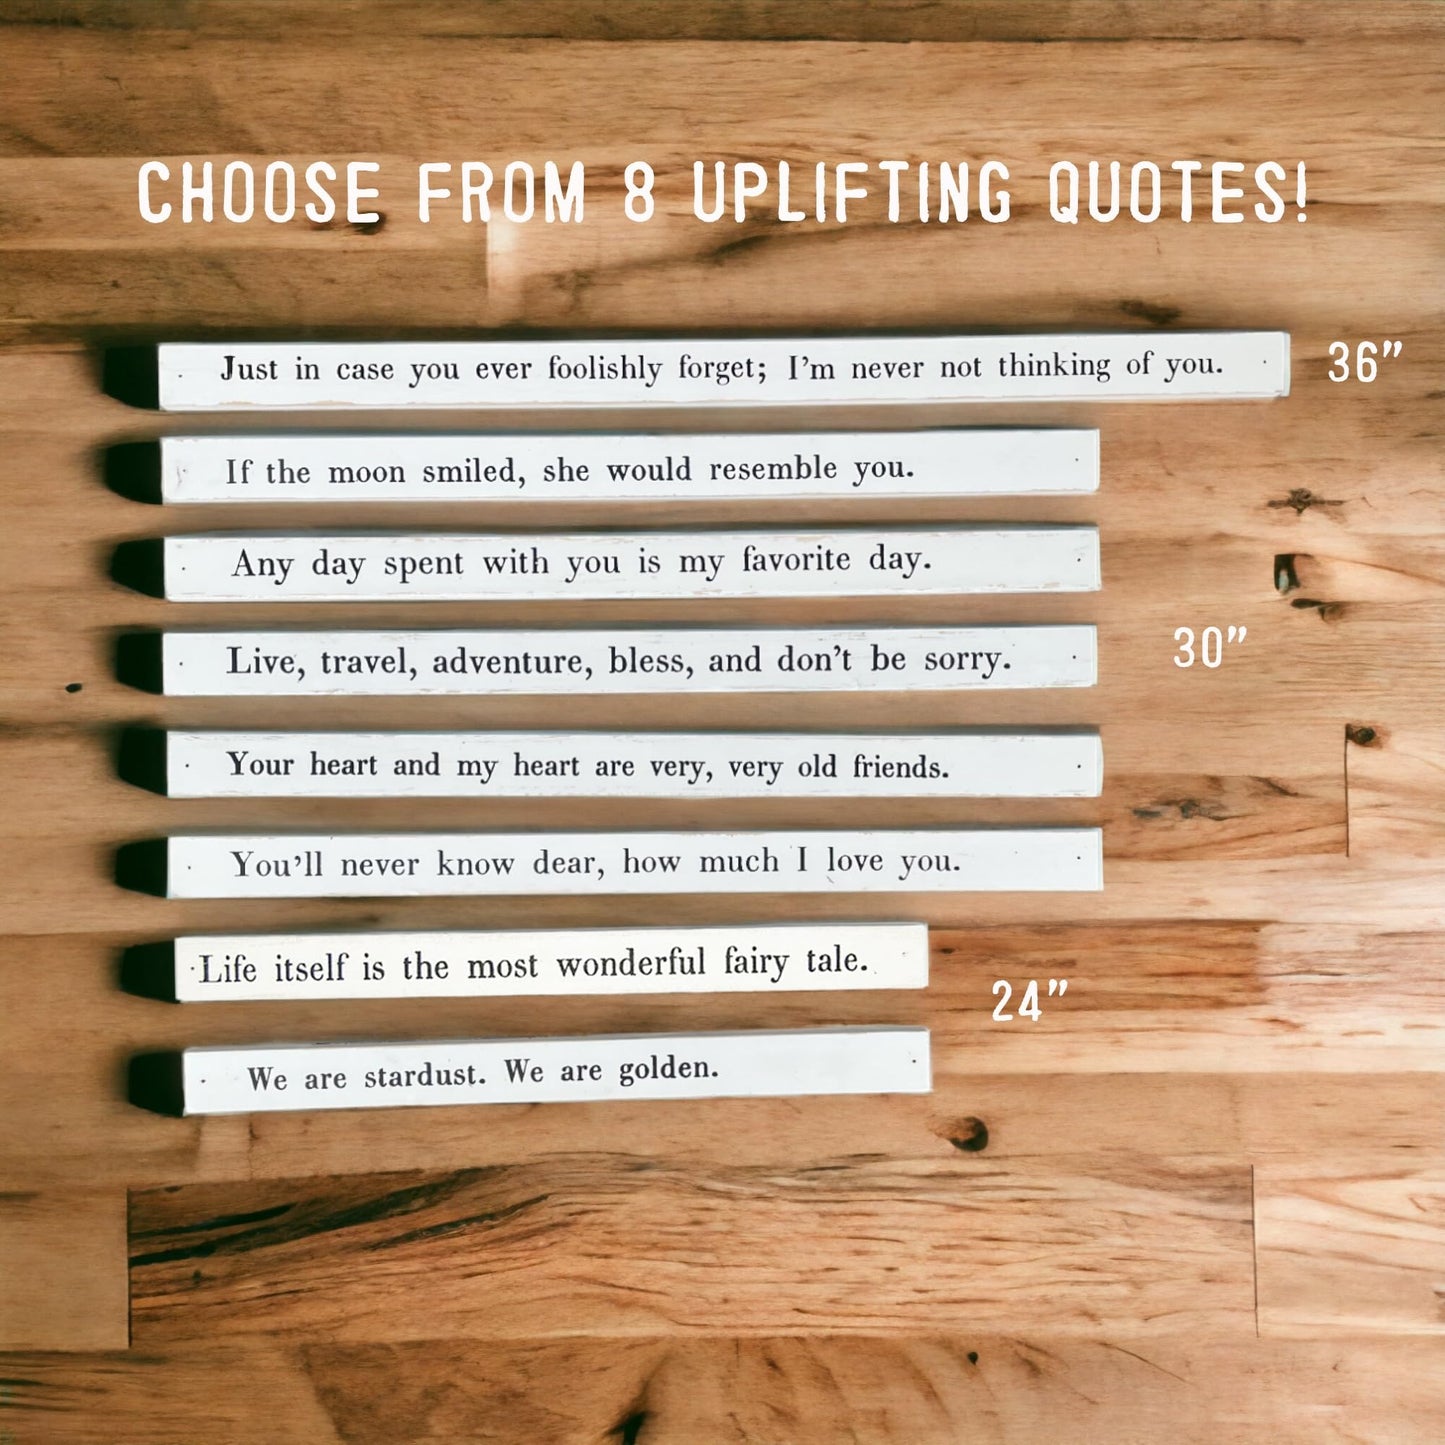 CHOOSE FROM 8 UPLIFTING QUOTES!
Just in case you ever foolishly forget; I'm never not thinking of you.
36"
If the moon smiled, she would resemble you.
Any day spent with you is my favorite day.
Live, travel, adventure, bless, and don't be sorry.
30"
Your heart and my heart are very, very old friends.
You'll never know dear, how much I love you.
Life itself is the most wonderful fairy tale.
24"
We are stardust. We are golden.